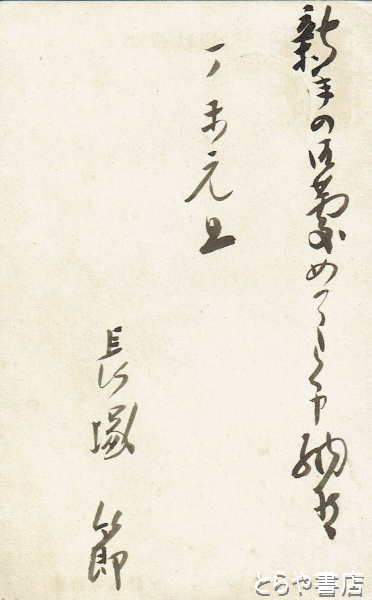 新年の御慶めてたく申納候
丁未元旦
長塚節
とらや書店